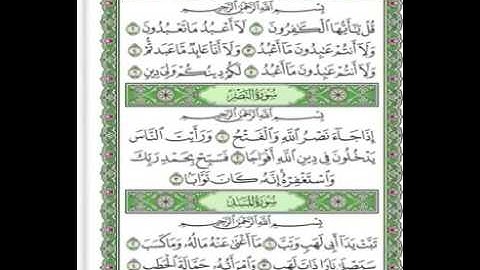 بِسْمِ اللَّهِ الرَّحْمَٰنِ الرَّحِيمِ
قُلْ يَا أَيُّهَا الْكَافِرُونَ ١ لَا أَعْبُدُ مَا تَعْبُدُونَ ٢
وَلَا أَنتُمْ عَابِدُونَ مَا أَعْبُدُ ٣ وَلَا أَنَا عَابِدٌ مَّا عَبَدتُّمْ ٤
وَلَا أَنتُمْ عَابِدُونَ مَا أَعْبُدُ ٥ لَكُمْ دِينُكُمْ وَلِيَ دِينِ ٦
سُورَةُ النَّصْرِ
بِسْمِ اللَّهِ الرَّحْمَٰنِ الرَّحِيمِ
إِذَا جَاءَ نَصْرُ اللَّهِ وَالْفَتْحُ ١ وَرَأَيْتَ النَّاسَ
يَدْخُلُونَ فِي دِينِ اللَّهِ أَفْوَاجًا ٢ فَسَبِّحْ بِحَمْدِ رَبِّكَ
وَاسْتَغْفِرْهُ إِنَّهُ كَانَ تَوَّابًا ٣
سُورَةُ المَسَد
بِسْمِ اللَّهِ الرَّحْمَٰنِ الرَّحِيمِ
تَبَّتْ يَدَا أَبِي لَهَبٍ وَتَبَّ ١ مَا أَغْنَىٰ عَنْهُ مَالُهُ وَمَا كَسَبَ ٢
سَيَصْلَىٰ نَارًا ذَاتَ لَهَبٍ ٣ وَامْرَأَتُهُ حَمَّالَةَ الْحَطَبِ ٤